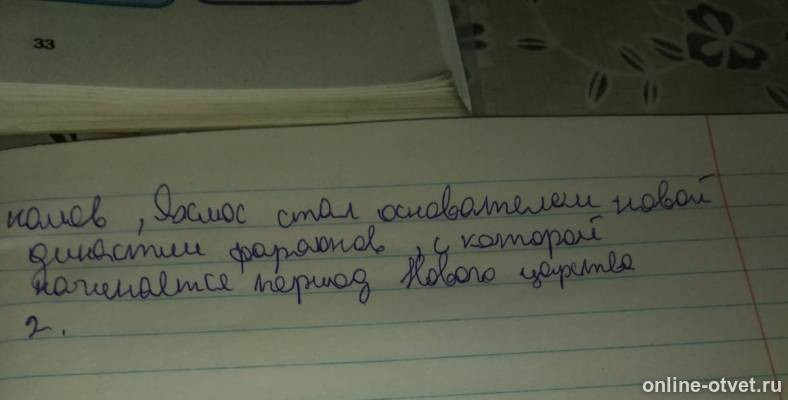 33
номов, Яхмос стал основателем новой
династии фараонов, с которой
начинается период Нового царства
2.
online-otvet.ru